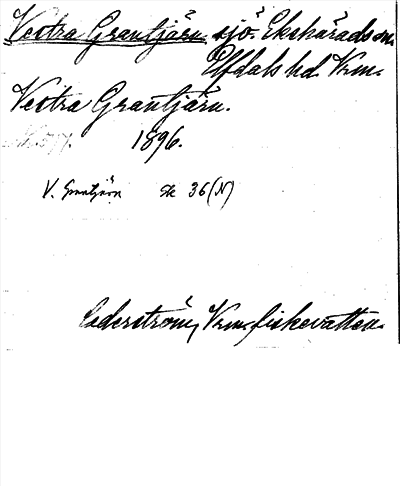 Vestra Grantjärn sjö. Ekshärads sn.
Elfdals hd. Vrm.
Vestra Grantjärn.
1896.
V. Grantjärn sk 36(N)
Cederström, Vrm. fiskevatten.